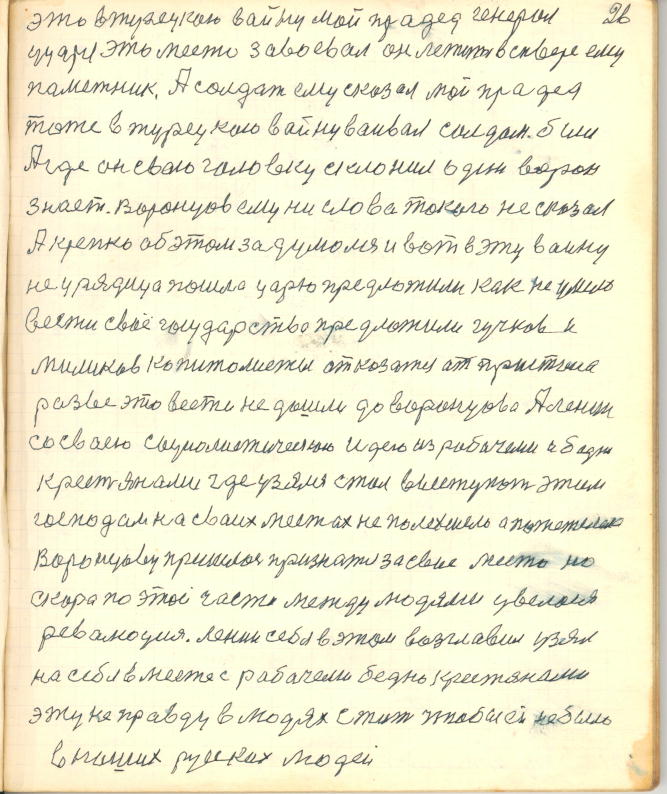 это втурецкою вайну мой прадед генерал 26
уцаря это место завоевал он летит всквере ему
паметник. А солдат ему сказал мой прадед
тоже втурецкою вайну ваивал солдом. были
А где он сваю головку склонил один ворон
знает. Воронцов ему ни слова такого не сказал
А крепко об этом задумолся и вот вэту ваину
не урядица пошла царю предложили как не умило
вести своё государство предложили гучков и
миликов копитолисты отказатся от пристола
разве это вести не дошли до воронцова А ленин
со сваею социолистическою идею из рабачеми и бедн
крестянами где узяля стал выступат этим
господам на сваих местах не
Воронцову пришлося признати за свае место но
скара по этой части между людями увелася
революция. ленин себя вэтом возглавил узял
на себя вместе с рабачеми бедно крестянами
эту не правду в людях стит чтобы ей небыло
в наших руских людей